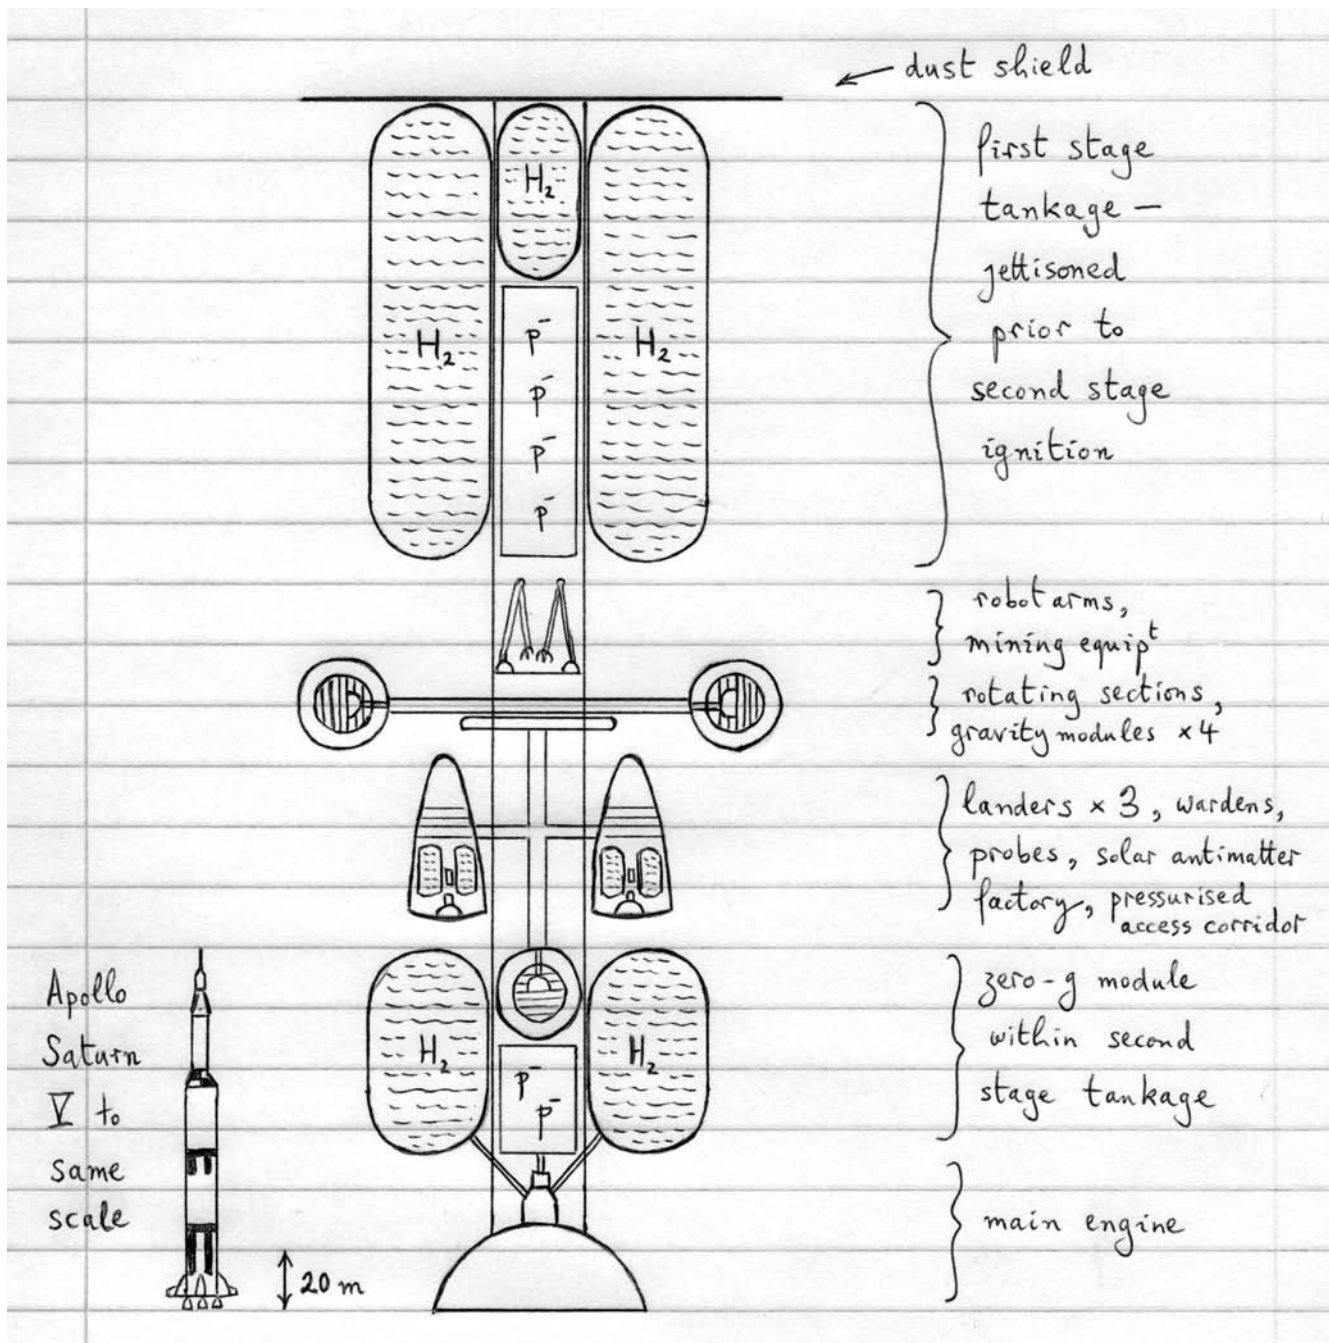 dust shield
first stage
tankage —
jettisoned
prior to
second stage
ignition
H₂
H₂
H₂
p⁻
p⁻
p⁻
p⁻
robot arms,
mining equipᵗ
rotating sections,
gravity modules ×4
landers × 3, wardens,
probes, solar antimatter
factory, pressurised
access corridor
zero-g module
within second
stage tankage
H₂
H₂
p⁻
p⁻
main engine
Apollo
Saturn
V to
same
scale
20 m